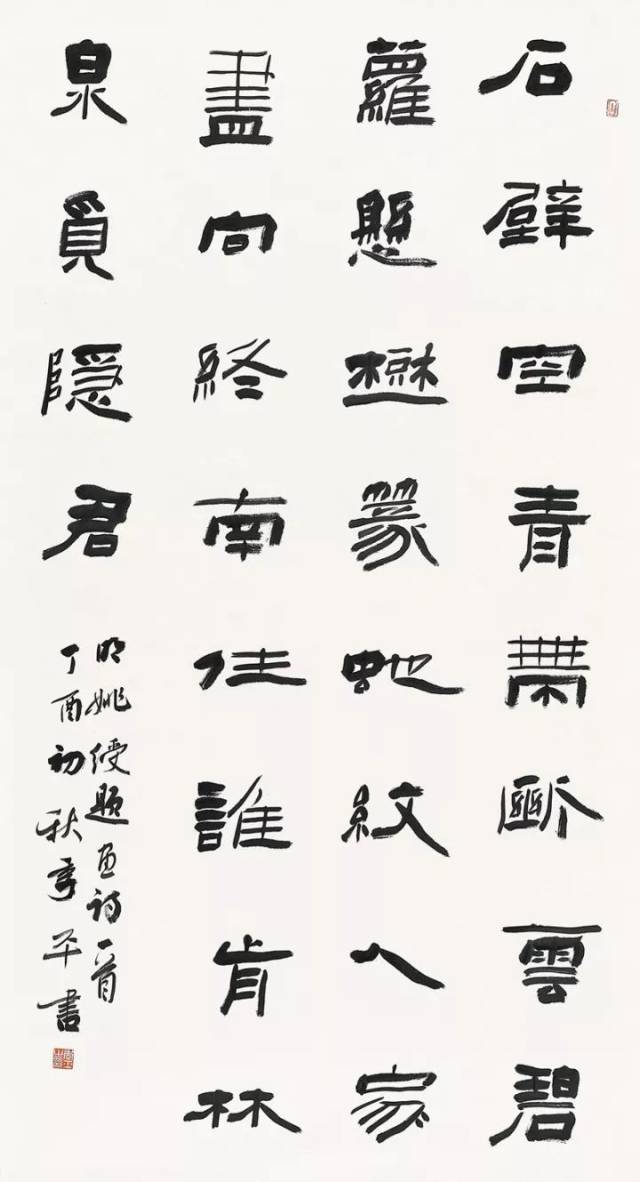 石壁空青帶斷雲碧
蘿懸篆虵紋人家
盡向終南住誰肯林
泉覓隱君
明姚綬題画詩一首
丁酉初秋平書